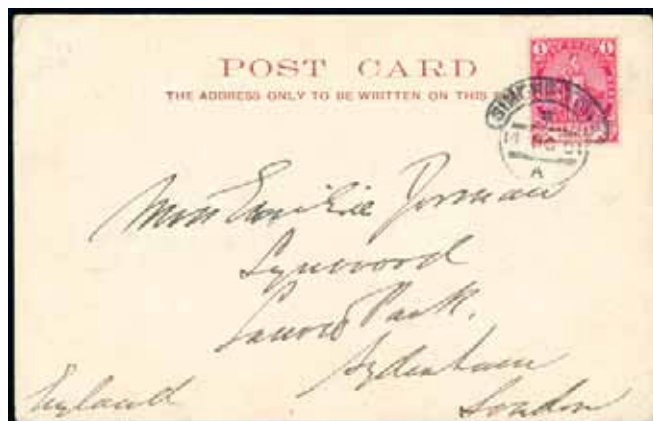 POST CARD
THE ADDRESS ONLY TO BE WRITTEN ON THIS
1 1
SIMON'S TOWN
A
Miss Emilie
Lynwood
Park.
Sydenham
London
England